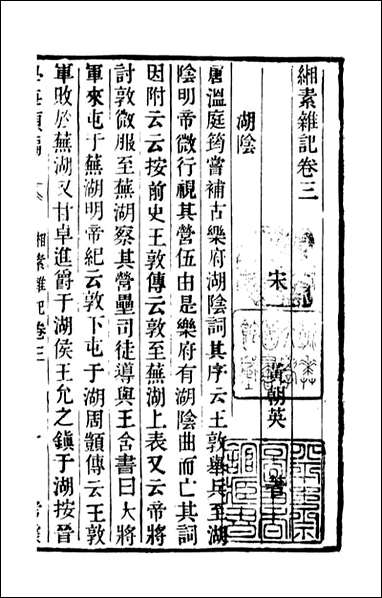 緗素雜記卷三
宋 黃朝英 著
湖陰
唐溫庭筠嘗補古樂府湖陰詞其序云王敦舉兵至湖
陰明帝微行視其營伍由是樂府有湖陰曲而亡其詞
因附云云按前史王敦傳云敦至蕪湖上表又云帝將
討敦微服至蕪湖察其營壘司徒導與王含書曰大將
軍來屯于蕪湖明帝紀云敦下屯于湖周顗傳云王敦
軍敗於蕪湖又甘卓進爵于湖侯王允之鎮于湖按晉
緗素雜記卷三